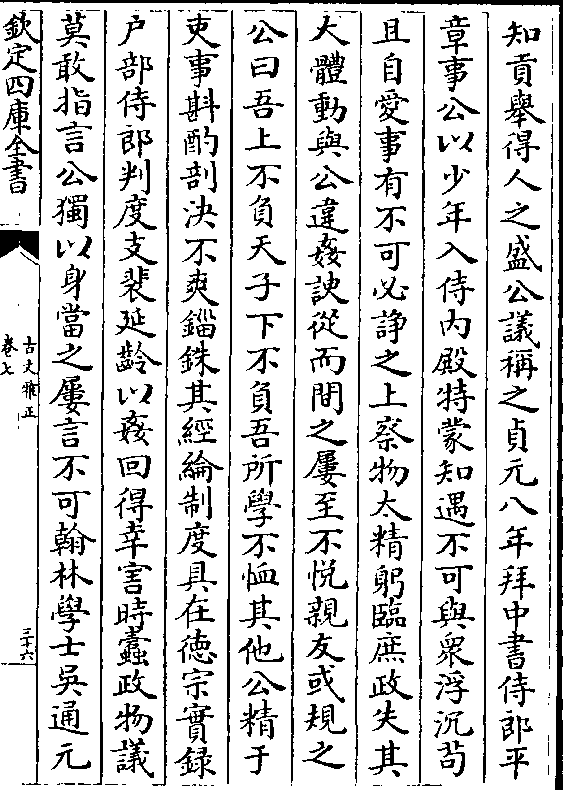 知貢舉得人之盛公議稱之貞元八年拜中書侍郎平
章事公以少年入侍内殿特蒙知遇不可與衆浮沉茍
且自愛事有不可必諍之上察物太精躬臨庶政失其
大體動與公違姦諛從而間之屢至不悅親友或規之
公曰吾上不負天子下不負吾所學不恤其他公精于
吏事斟酌剖決不爽錙銖其經綸制度具在德宗實録
户部侍郎判度支裴延齡以姦回得幸害時蠹政物議
莫敢指言公獨以身當之屢言不可翰林學士吳通元
欽定四庫全書
古文雅正
卷七
三十六